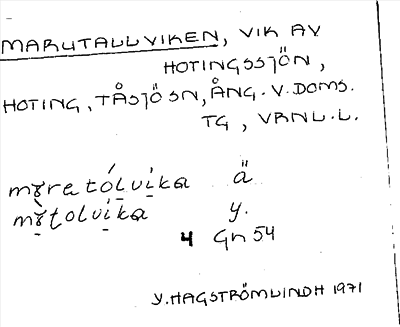 MARUTALLVIKEN, VIK AV
HOTINGSSJÖN,
HOTING, TÅSJÖ SN, ÅNG. V. DOMS.
TG, VRNL. L.
mɤretó̤lvi̤ka ä
mɤ̤̀ʈolvi̤ka y.
4 Gn 54
Y. HAGSTRÖMLINDH 1971